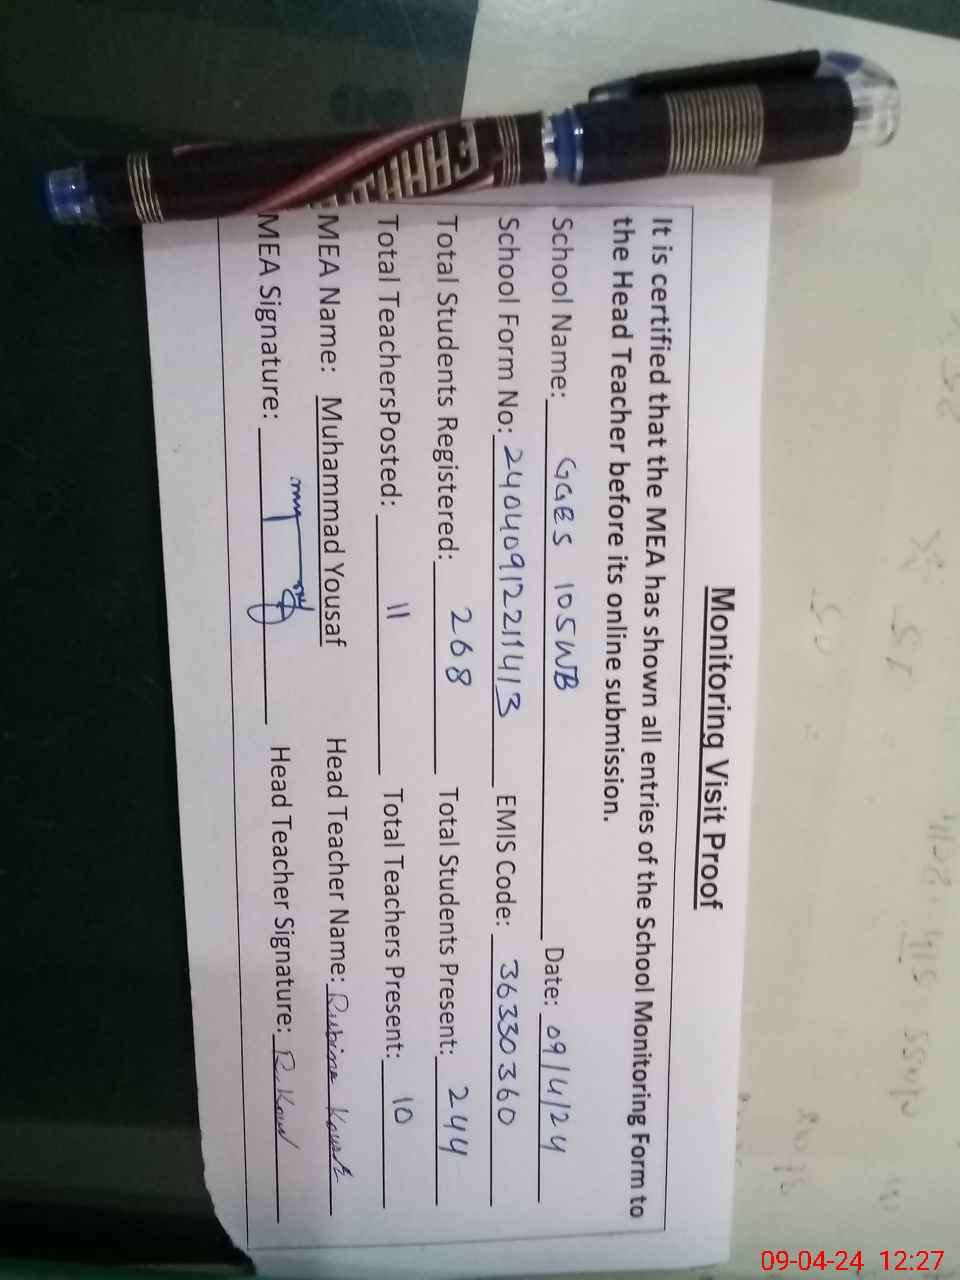 Monitoring Visit Proof
It is certified that the MEA has shown all entries of the School Monitoring Form to
the Head Teacher before its online submission.
School Name: GGES 105WB Date: 09/4/24
School Form No: 24040912211413 EMIS Code: 36330360
Total Students Registered: 268 Total Students Present: 244
Total TeachersPosted: 11 Total Teachers Present: 10
MEA Name: Muhammad Yousaf Head Teacher Name: Rubina
MEA Signature: Head Teacher Signature:
09-04-24 12:27